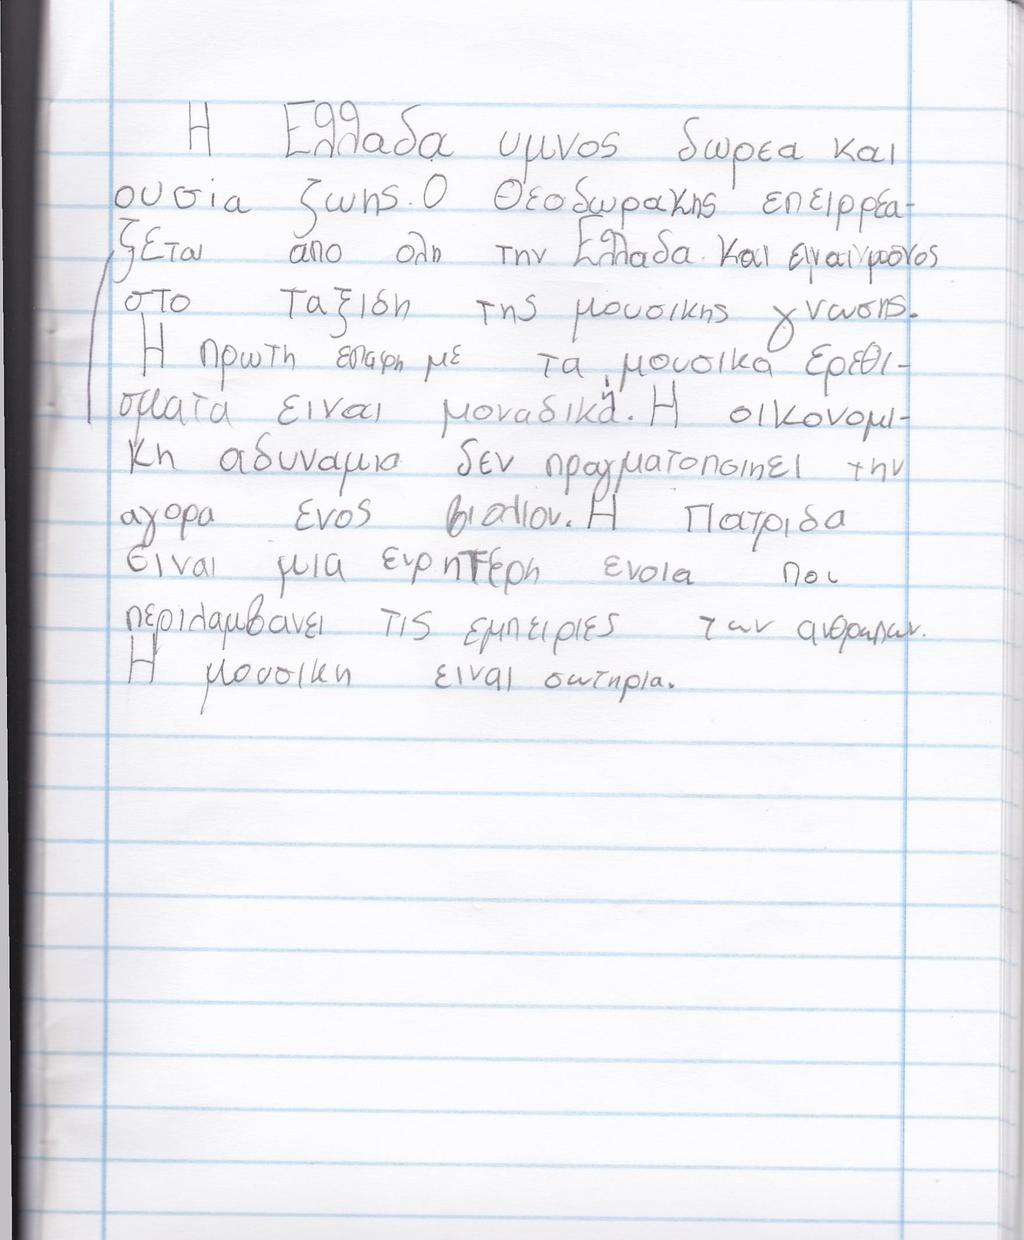 Η Ελλαδα υμνος δωρεα και
ουσία ζωης. Ο Θεοδωρακης επειρρέα-
ζεται απο ολη την Ελλαδα. Και ειναι μονος
στο ταξιδη της μουσικης γνωσης.
Η πρωτη επαφη με τα μουσικα ερεθι-
σματα ειναι μοναδικά. Η οικονομι-
κη αδυναμια δεν πραγματοποιηει την
αγορα ενος βιολιου. Η Πατριδα
ειναι μια ευρητερη ενοια που
περιλαμβανει τις εμπειριες των ανθρωπων.
Η μουσικη ειναι σωτηρια.